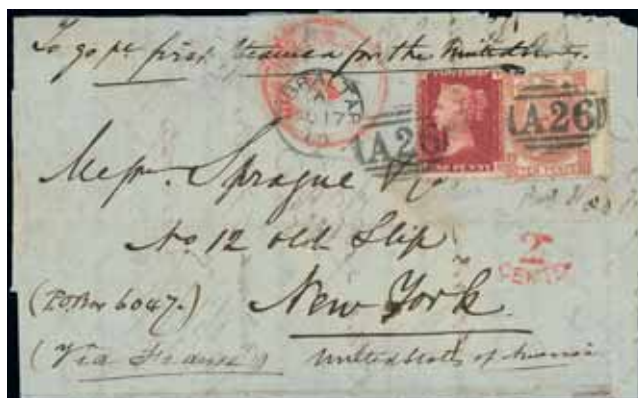 To go pr first Steamer for the United
GIBRALTAR
A
17
A26 A26
Messrs. Sprague & Co
No 12 old Slip
CENTS
(P.O Box 6047.)
New York
(Via France)
United States of America